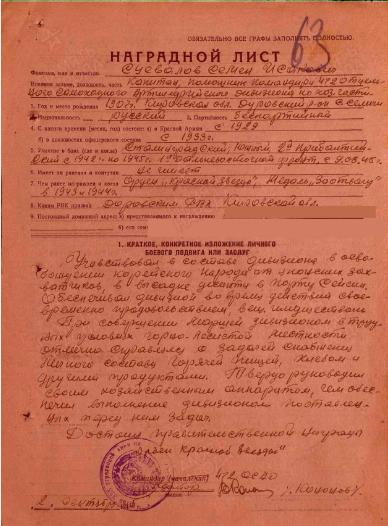 63
ОБЯЗАТЕЛЬНО ВСЕ ГРАФЫ ЗАПОЛНЯТЬ ПОЛНОСТЬЮ.
НАГРАДНОЙ ЛИСТ
Фамилия, имя и отчество Суевалов Семен Исакович
Капитан, помощник командира 472 отдель-
ного Самоходного Артиллерийского Дивизиона по хоз. части
1. Год и место рождения 1907г. Кировская обл. Дуровский р-он
русский 3. Партийность беспартийный
4. С какого времени в Красной Армии с 1929
с 1939г.
Сталинградский, Южный, 2й Прибалтий-
ский с 1942г. по 1945г. 1й Дальневосточный фронт, с 9.08.45г.
6. Имеет ли ранения и контузии Не имеет
7. Чем ранее награжден Орден „Красная Звезда", Медаль „За отвагу"
в 1943 и 1944г.
8. Каким РВК призван Кировской обл.
9. Постоянный домашний адрес
1. КРАТКОЕ, КОНКРЕТНОЕ ИЗЛОЖЕНИЕ ЛИЧНОГО
БОЕВОГО ПОДВИГА ИЛИ ЗАСЛУГ
Участвовал в составе дивизиона в осво-
бождении Корейского народа от японских зах-
ватчиков, в высадке десанта в порту Сейсин.
Обеспечивал дивизион во время действий свое-
временно продовольствием, вещ. имуществом.
При совершении маршей дивизионом в труд-
ных условиях горно-лесистой местности
отлично справлялся с задачей снабжения
личного состава горячей пищей, хлебом и
другими продуктами. Твердо руководил
своим хозяйственным аппаратом, чем обес-
печил выполнение дивизионом поставлен-
ных перед ним задач.
Достоин правительственной награды
орден Красной Звезды
Командир (начальник) 472 ОСАД
/Кононов/
2 сентября